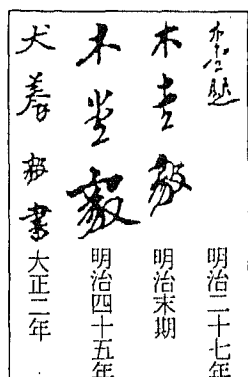 木堂題 明治二十七年
木堂毅 明治末期
木堂毅 明治四十五年
犬養毅書 大正二年